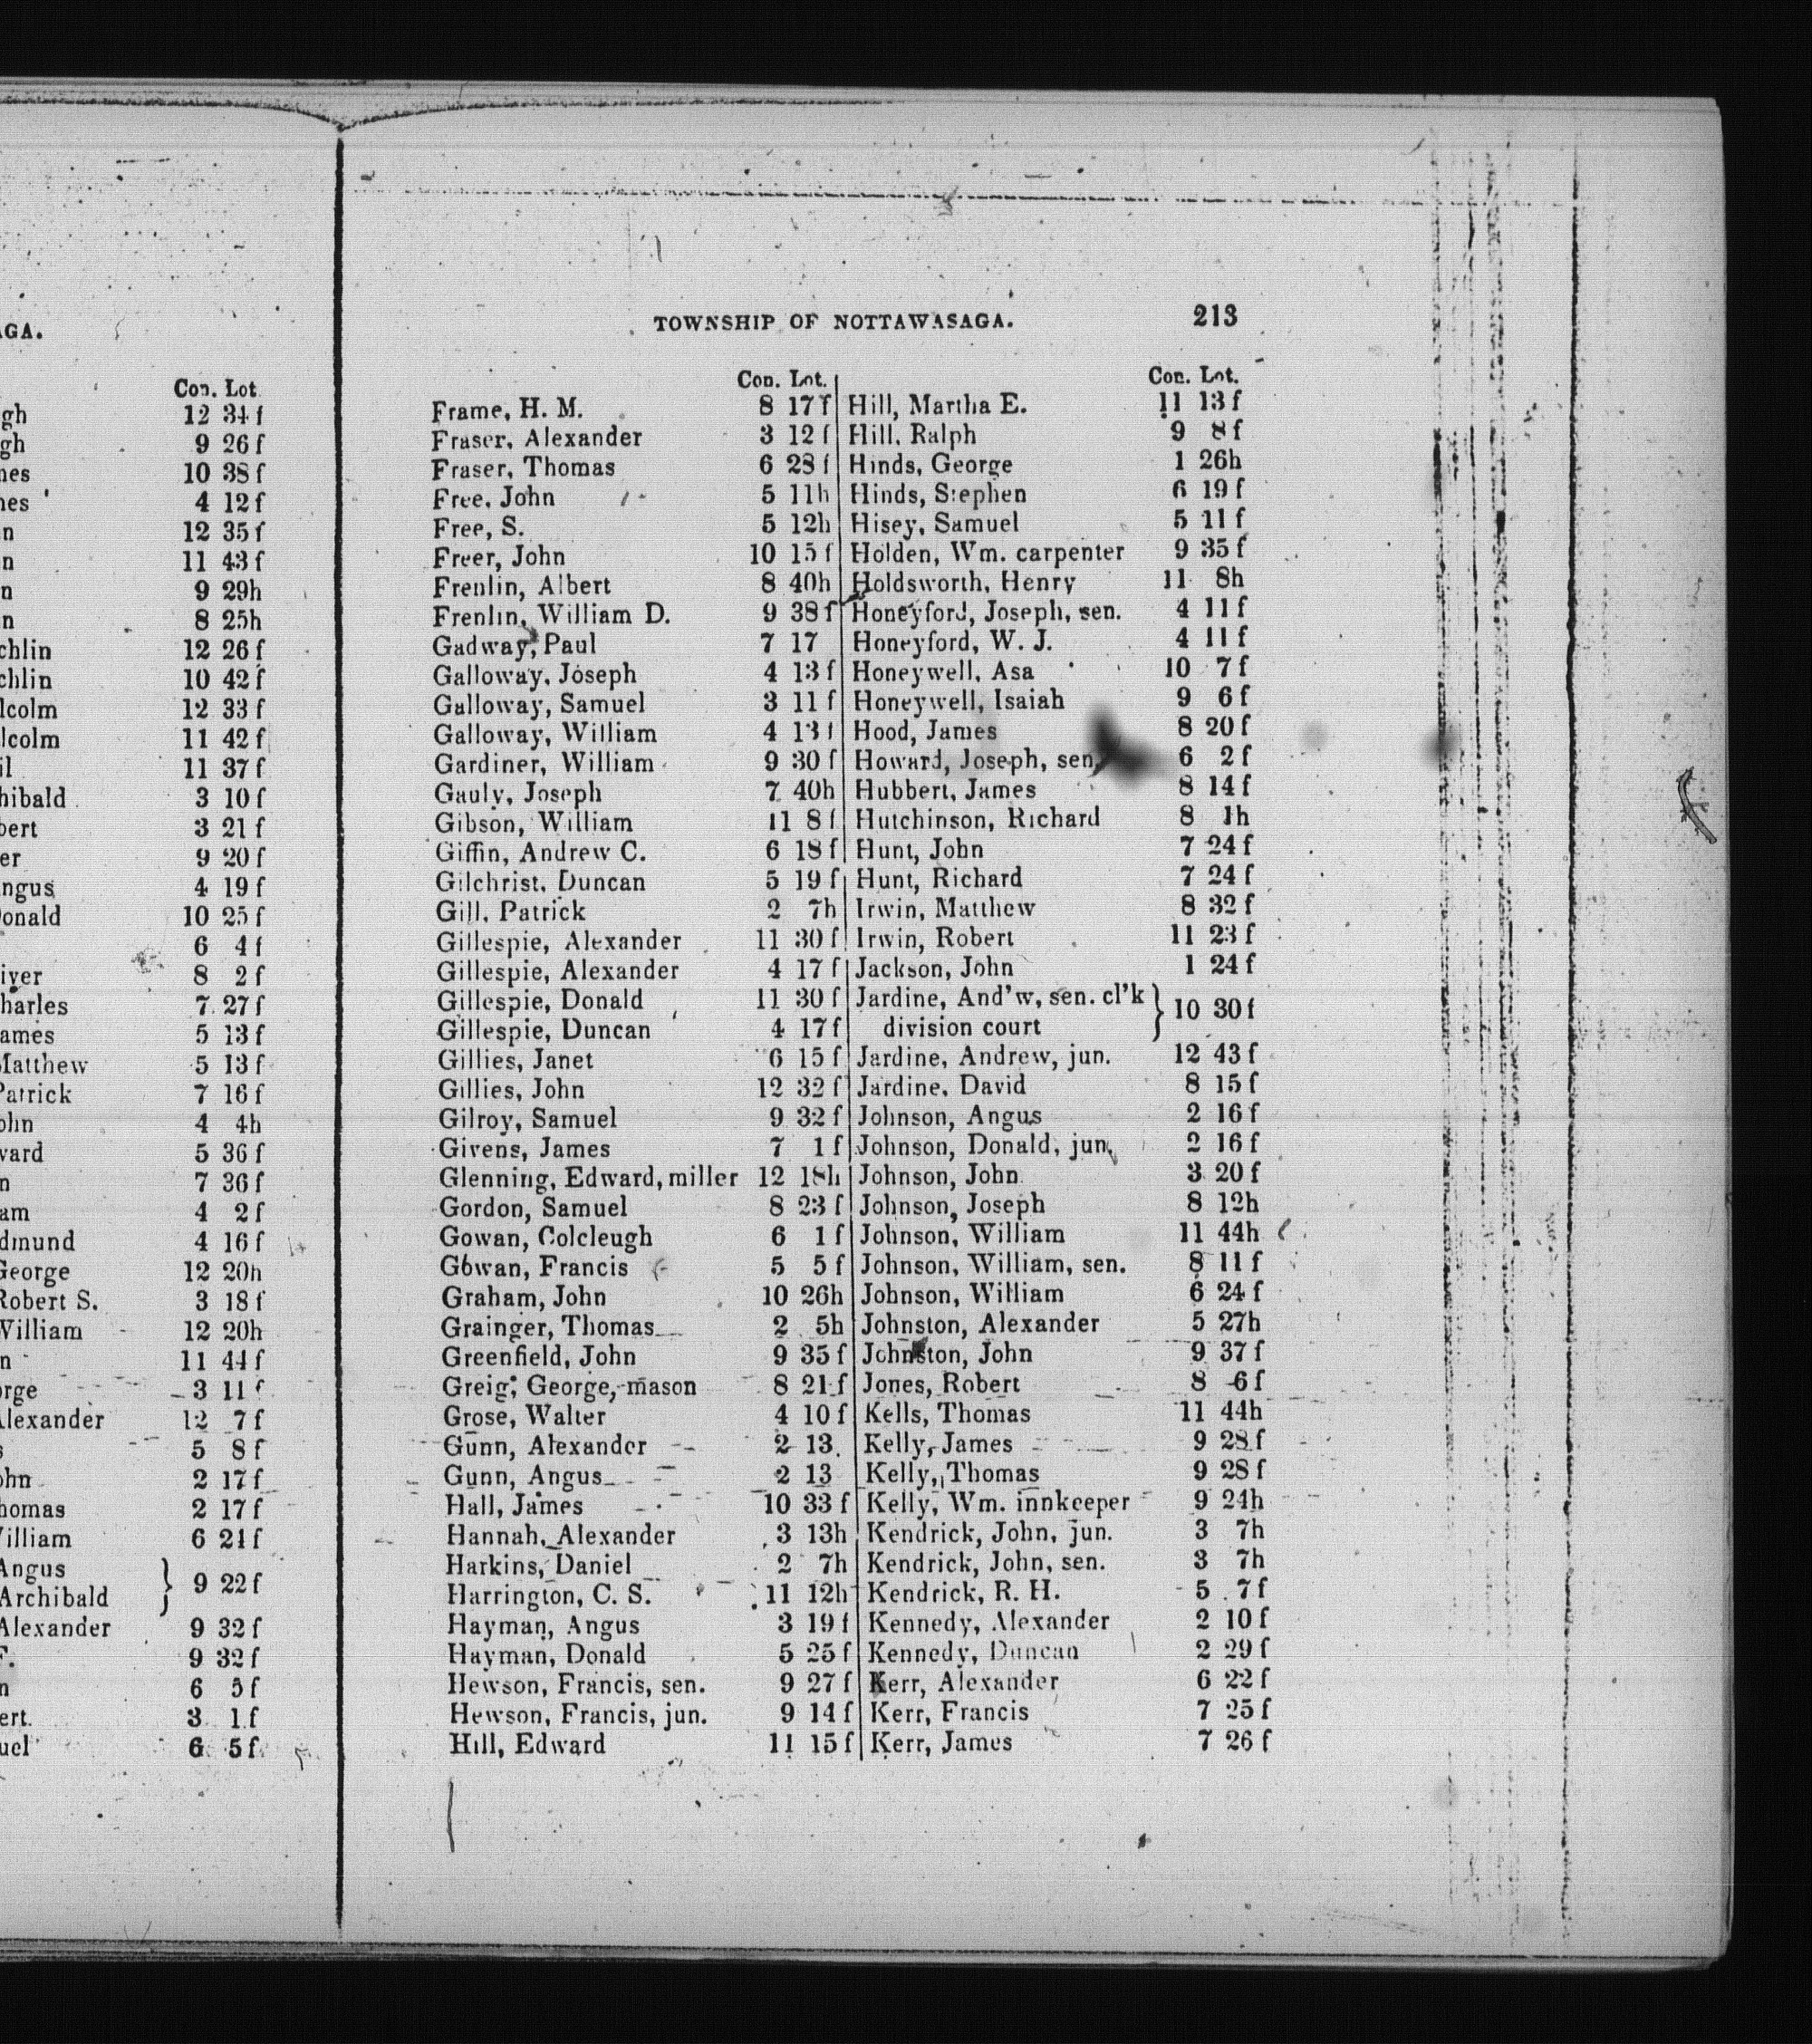 AGA.
Con. Lot
gh 12 34 f
gh 9 26 f
nes 10 38 f
nes 4 12 f
n 12 35 f
n 11 43 f
n 9 29h
n 8 25h
chlin 12 26 f
chlin 10 42 f
lcolm 12 33 f
lcolm 11 42 f
il 11 37 f
hibald 3 10 f
bert 3 21 f
er 9 20 f
ngus 4 19 f
onald 10 25 f
6 4 f
iver 8 2 f
harles 7 27 f
ames 5 13 f
Matthew 5 13 f
Patrick 7 16 f
ohn 4 4h
ward 5 36 f
n 7 36 f
am 4 2 f
dmund 4 16 f
George 12 20h
Robert S. 3 18 f
William 12 20h
n 11 44 f
orge 3 11 f
Alexander 12 7 f
s 5 8 f
ohn 2 17 f
homas 2 17 f
William 6 21 f
Angus
Archibald } 9 22 f
Alexander 9 32 f
F. 9 32 f
n 6 5 f
ert. 3 1 f
uel 6 5 f
TOWNSHIP OF NOTTAWASAGA. 213
Con. Lot.
Frame, H. M. 8 17 f
Fraser, Alexander 3 12 f
Fraser, Thomas 6 28 f
Free, John 5 11h
Free, S. 5 12h
Freer, John 10 15 f
Frenlin, Albert 8 40h
Frenlin, William D. 9 38 f
Gadway, Paul 7 17
Galloway, Joseph 4 13 f
Galloway, Samuel 3 11 f
Galloway, William 4 13 f
Gardiner, William 9 30 f
Gauly, Joseph 7 40h
Gibson, William 11 8 f
Giffin, Andrew C. 6 18 f
Gilchrist, Duncan 5 19 f
Gill, Patrick 2 7h
Gillespie, Alexander 11 30 f
Gillespie, Alexander 4 17 f
Gillespie, Donald 11 30 f
Gillespie, Duncan 4 17 f
Gillies, Janet 6 15 f
Gillies, John 12 32 f
Gilroy, Samuel 9 32 f
Givens, James 7 1 f
Glenning, Edward, miller 12 18h
Gordon, Samuel 8 23 f
Gowan, Colcleugh 6 1 f
Gowan, Francis 5 5 f
Graham, John 10 26h
Grainger, Thomas 2 5h
Greenfield, John 9 35 f
Greig, George, mason 8 21 f
Grose, Walter 4 10 f
Gunn, Alexander 2 13
Gunn, Angus 2 13
Hall, James 10 33 f
Hannah, Alexander 3 13h
Harkins, Daniel 2 7h
Harrington, C. S. 11 12h
Hayman, Angus 3 19 f
Hayman, Donald 5 25 f
Hewson, Francis, sen. 9 27 f
Hewson, Francis, jun. 9 14 f
Hill, Edward 11 15 f
Con. Lot.
Hill, Martha E. 11 13 f
Hill, Ralph 9 8 f
Hinds, George 1 26h
Hinds, Stephen 6 19 f
Hisey, Samuel 5 11 f
Holden, Wm. carpenter 9 35 f
Holdsworth, Henry 11 8h
Honeyford, Joseph, sen. 4 11 f
Honeyford, W. J. 4 11 f
Honeywell, Asa 10 7 f
Honeywell, Isaiah 9 6 f
Hood, James 8 20 f
Howard, Joseph, sen. 6 2 f
Hubbert, James 8 14 f
Hutchinson, Richard 8 1h
Hunt, John 7 24 f
Hunt, Richard 7 24 f
Irwin, Matthew 8 32 f
Irwin, Robert 11 23 f
Jackson, John 1 24 f
Jardine, And'w, sen. cl'k
division court } 10 30 f
Jardine, Andrew, jun. 12 43 f
Jardine, David 8 15 f
Johnson, Angus 2 16 f
Johnson, Donald, jun. 2 16 f
Johnson, John 3 20 f
Johnson, Joseph 8 12h
Johnson, William 11 44h
Johnson, William, sen. 8 11 f
Johnson, William 6 24 f
Johnston, Alexander 5 27h
Johnston, John 9 37 f
Jones, Robert 8 6 f
Kells, Thomas 11 44h
Kelly, James 9 28 f
Kelly, Thomas 9 28 f
Kelly, Wm. innkeeper 9 24h
Kendrick, John, jun. 3 7h
Kendrick, John, sen. 3 7h
Kendrick, R. H. 5 7 f
Kennedy, Alexander 2 10 f
Kennedy, Duncan 2 29 f
Kerr, Alexander 6 22 f
Kerr, Francis 7 25 f
Kerr, James 7 26 f